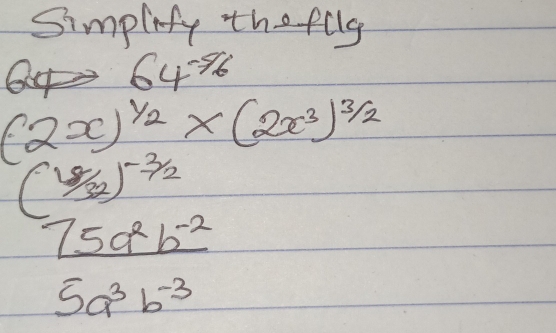 Simplify the fllg
64^-5/6
(2x)^1/2 × (2x³)^3/2
(18/32)^-3/2
75a²b^-2
5a³b^-3